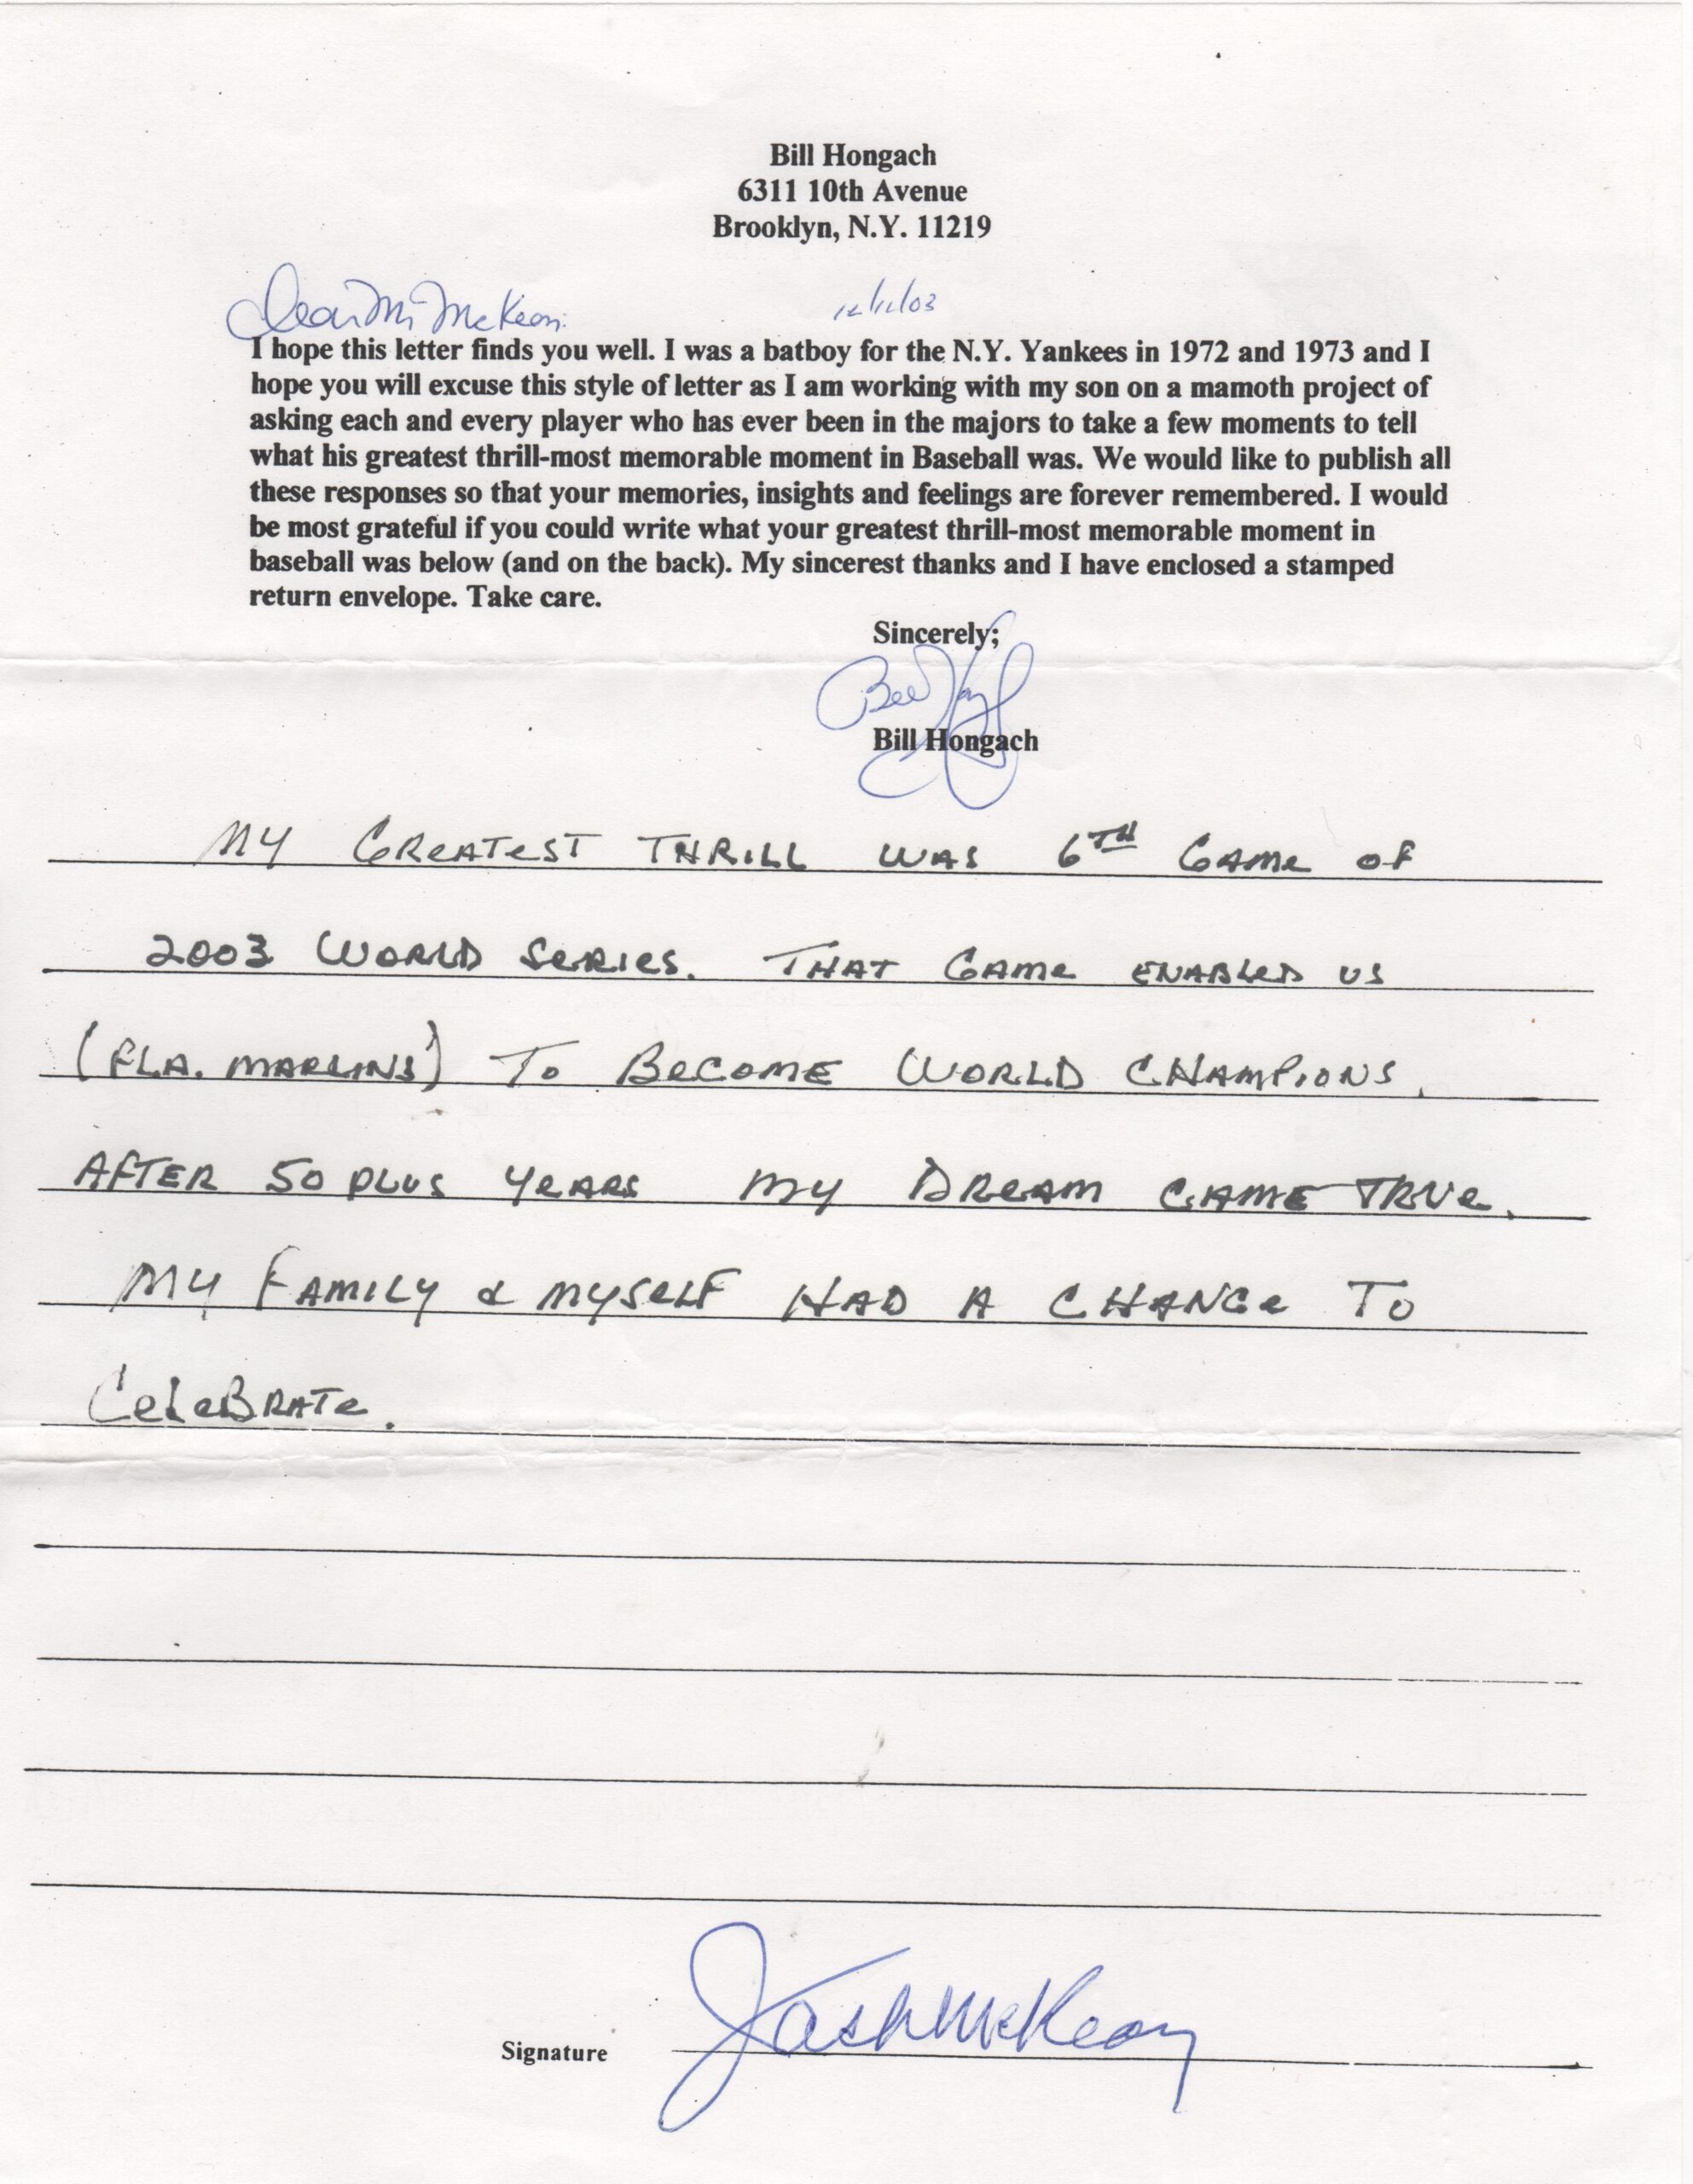 Bill Hongach
6311 10th Avenue
Brooklyn, N.Y. 11219
Dear Mr McKeon: 12/12/03
I hope this letter finds you well. I was a batboy for the N.Y. Yankees in 1972 and 1973 and I
hope you will excuse this style of letter as I am working with my son on a mamoth project of
asking each and every player who has ever been in the majors to take a few moments to tell
what his greatest thrill-most memorable moment in Baseball was. We would like to publish all
these responses so that your memories, insights and feelings are forever remembered. I would
be most grateful if you could write what your greatest thrill-most memorable moment in
baseball was below (and on the back). My sincerest thanks and I have enclosed a stamped
return envelope. Take care.
Sincerely;
Bill Hongach
MY GREATEST THRILL WAS 6TH GAME OF
2003 WORLD SERIES. THAT GAME ENABLED US
(FLA. MARLINS) TO BECOME WORLD CHAMPIONS.
AFTER 50 PLUS YEARS MY DREAM CAME TRUE.
MY FAMILY & MYSELF HAD A CHANCE TO
CELEBRATE.
Signature Jack McKeon